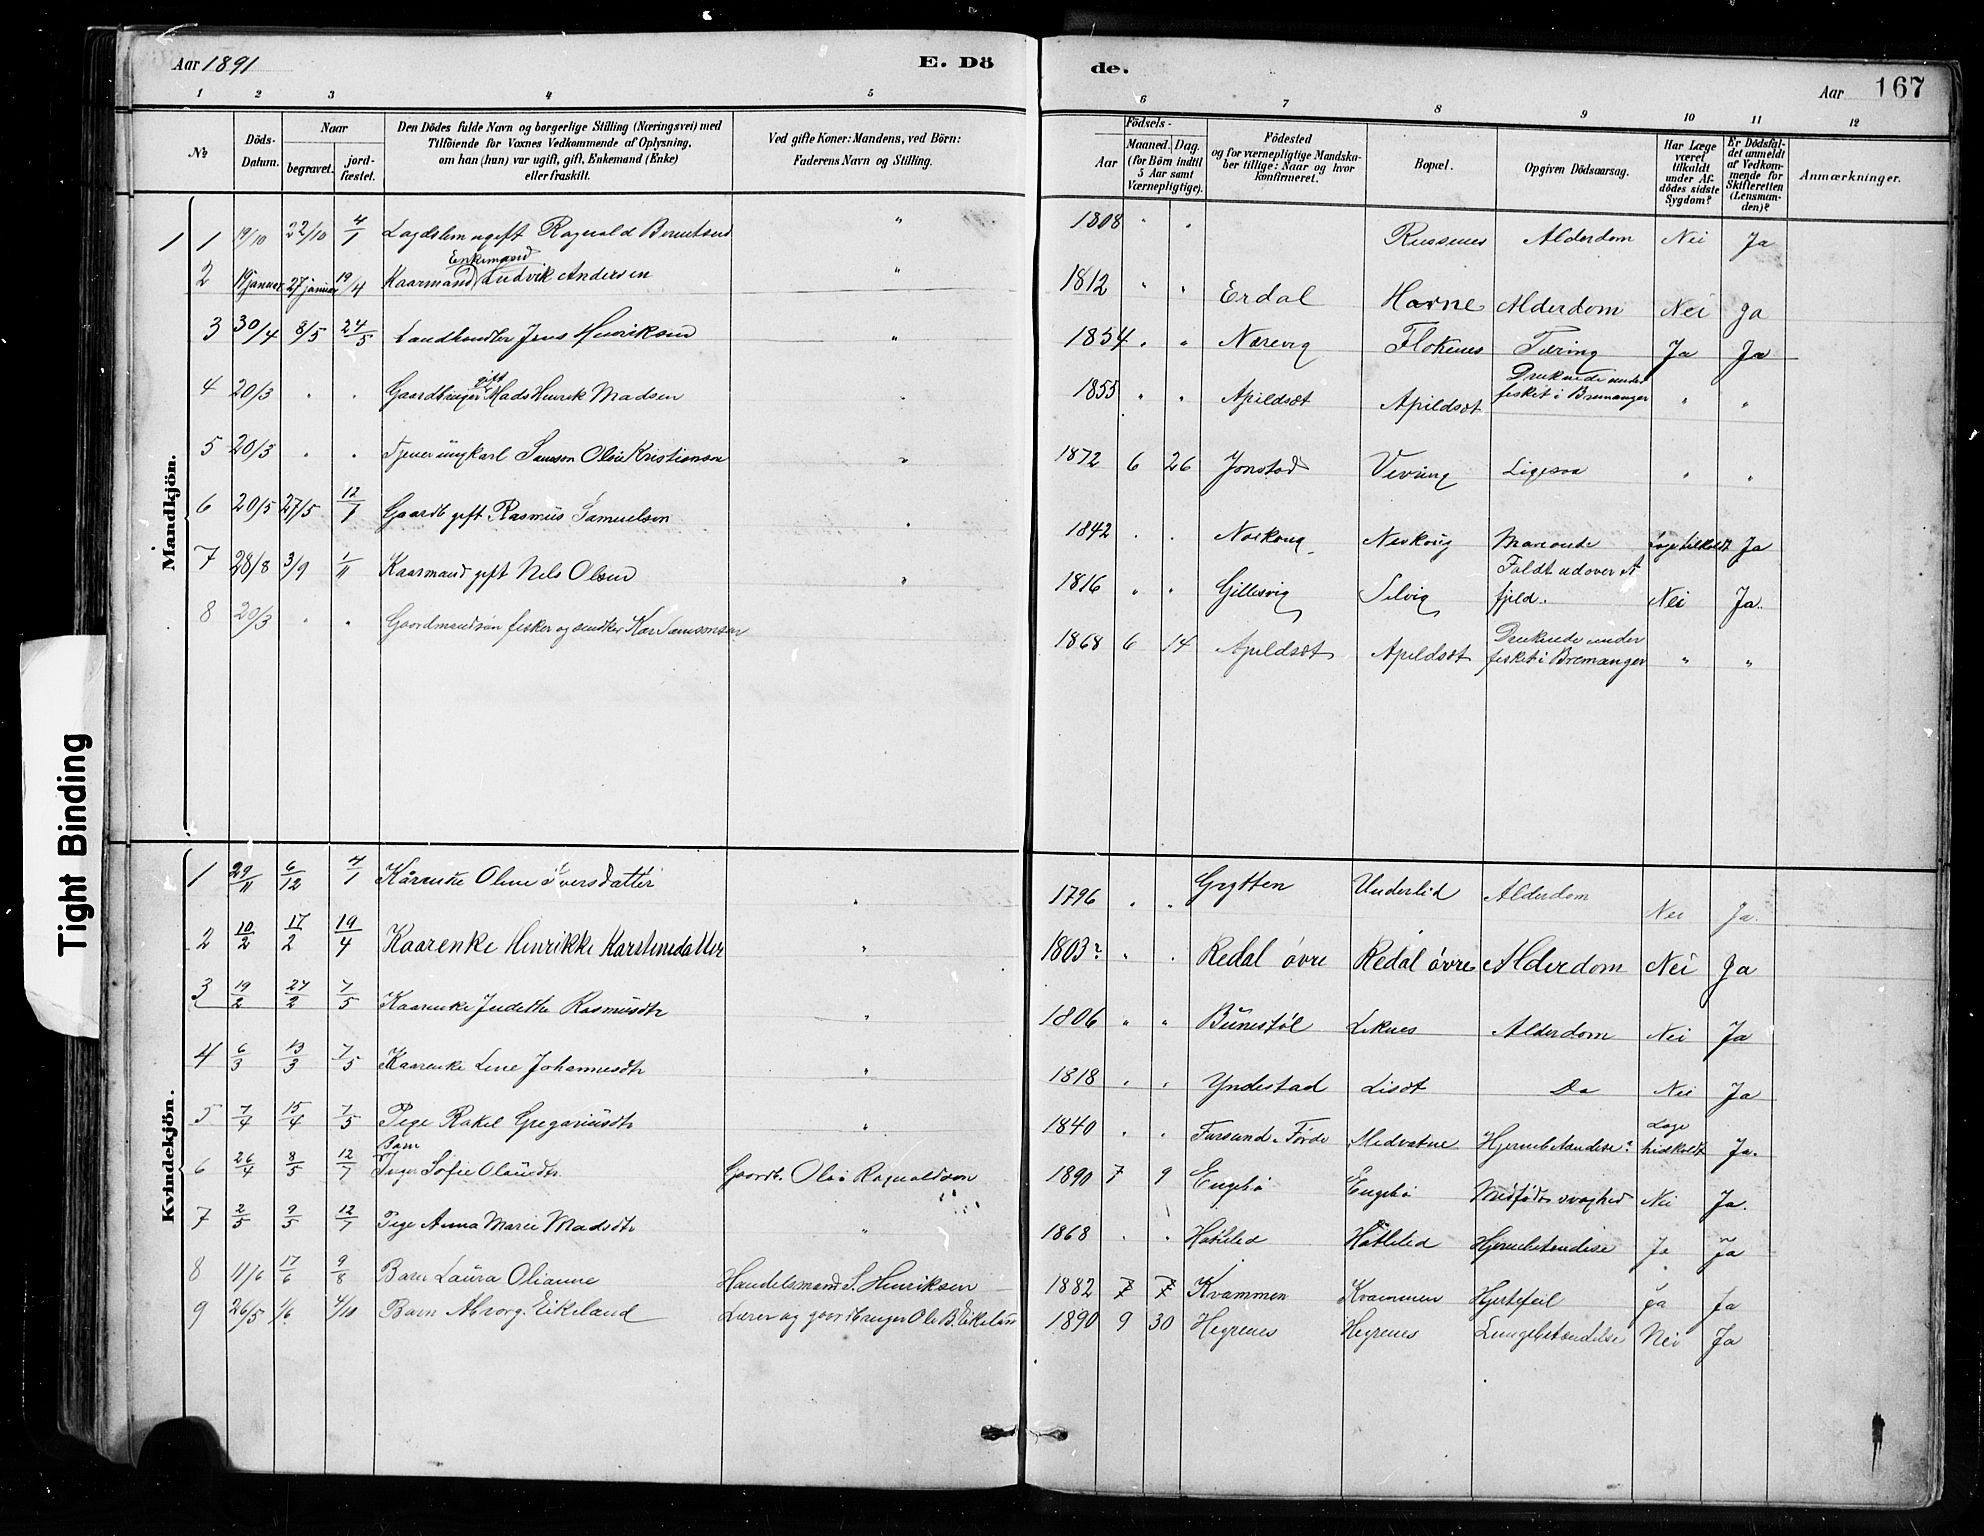 Aar 1891
E. Dö
de.
Aar 167
1 2 3 4 5 6 7 8 9 10 11 12
No
Döds-Datum.
Naar
begravet. jord-fæstet.
Den Dödes fulde Navn og borgerlige Stilling (Næringsvei) med
Tilföiende for Voxnes Vedkommende af Oplysning,
om han (hun) var ugift, gift, Enkemand (Enke)
eller fraskilt.
Ved gifte Koner: Mandens, ved Börn:
Faderens Navn og Stilling.
Födsels-
Aar Maaned. Dag.
(for Börn indtil
5 Aar samt
Værnepligtige).
Födested
og for værnepligtige Mandska-
ber tillige: Naar og hvor
konfirmeret.
Bopæl.
Opgiven Dödsaarsag.
Har Læge
været
tilkaldt
under Af-
dödes sidste
Sygdom?
Er Dödsfal-
det anmeldt
af Vedkom-
mende for
Skifteretten
(Lensman-
den)?
Anmærkninger.
Mandkjön.
1 1 19/10 22/10 4/1 Lægdslem ugift Ragnvald Berentsen " 1808 " " Russenes Alderdom Nei Ja
Enkemand
2 19 januar 27 januar 19/4 Kaarmand Ludvik Andersen " 1812 " " Erdal Havne Alderdom Nei Ja
3 30/4 8/5 24/5 Landhandler Jens Henriksen " 1854 " " Nærevig Flokenes Tæring Ja Ja
gift
4 20/3 " " Gaardbruger Mads Henrik Madsen " 1855 " " Apildsæt Apildsæt Druknede under fisket i Bremanger " "
5 20/3 " " Tjener ungkarl Samson Olai Kristianson " 1872 6 26 Jonstad Vevring Ligesaa " "
6 20/5 27/5 12/7 Gaardb gift Rasmus Samuelsen " 1842 " " Maveonde Læge tilkaldt Ja
7 28/8 3/9 1/11 Kaarmand gift Nels Olsen " 1816 " " Gillesvig Selvig Faldt udover et fjeld. Nei Ja.
8 20/3 " " Gaardmandssøn fisker og snedker Samsonsen 1868 6 14 Apildsæt Apildsæt Druknede under fisket i Bremanger " "
Kvindekjön.
1 29/11 6/12 4/1 Kårenke Oline Iversdatter " 1796 " " Grytten Underlid Alderdom Nei Ja.
2 10/2 17/2 19/4 Kaarenke Henrikke Karstensdatter " 1803? " " Redal övre Redal övre Alderdom Nei Ja
3 19/2 27/2 7/5 Kaarenke Judithe Rasmusdtr " 1806 " " Bünestöl Leknes Alderdom Nei Ja
4 6/3 13/3 7/5 Kaarenke Lene Johannesdtr " 1818 " " Yndestad Lisæt Do Nei Ja
5 7/4 15/4 7/5 Pige Rakel Gregariusdtr " 1840 " " Fursund i Förde Medvatne Hjernebetændelse? Læge tidskaldt Ja.
Barn
6 26/4 8/5 12/7 Inger Sofie Olaidtr. Gaardb. Olai Ragnvaldson 1890 7 9 Engebö Engebö Medfødt svaghed Nei Ja.
7 2/5 9/5 12/7 Pige Anna Marie Madsdtr " 1868 " " Håtleled Håtleled Hjernebetændelse Ja Ja
8 11/6 17/6 9/8 Barn Laura Olianne Handelsmand S. Henriksen 1882 7 7 Kvammen Kvammen Hjertefeil Ja Ja
9 26/5 1/6 4/10 Barn Eikeland Lærer og gaardbruger Ole B. Eikeland 1890 9 30 Hegrenes Hegrenes Lungebetændelse Nei Ja
Tight Binding